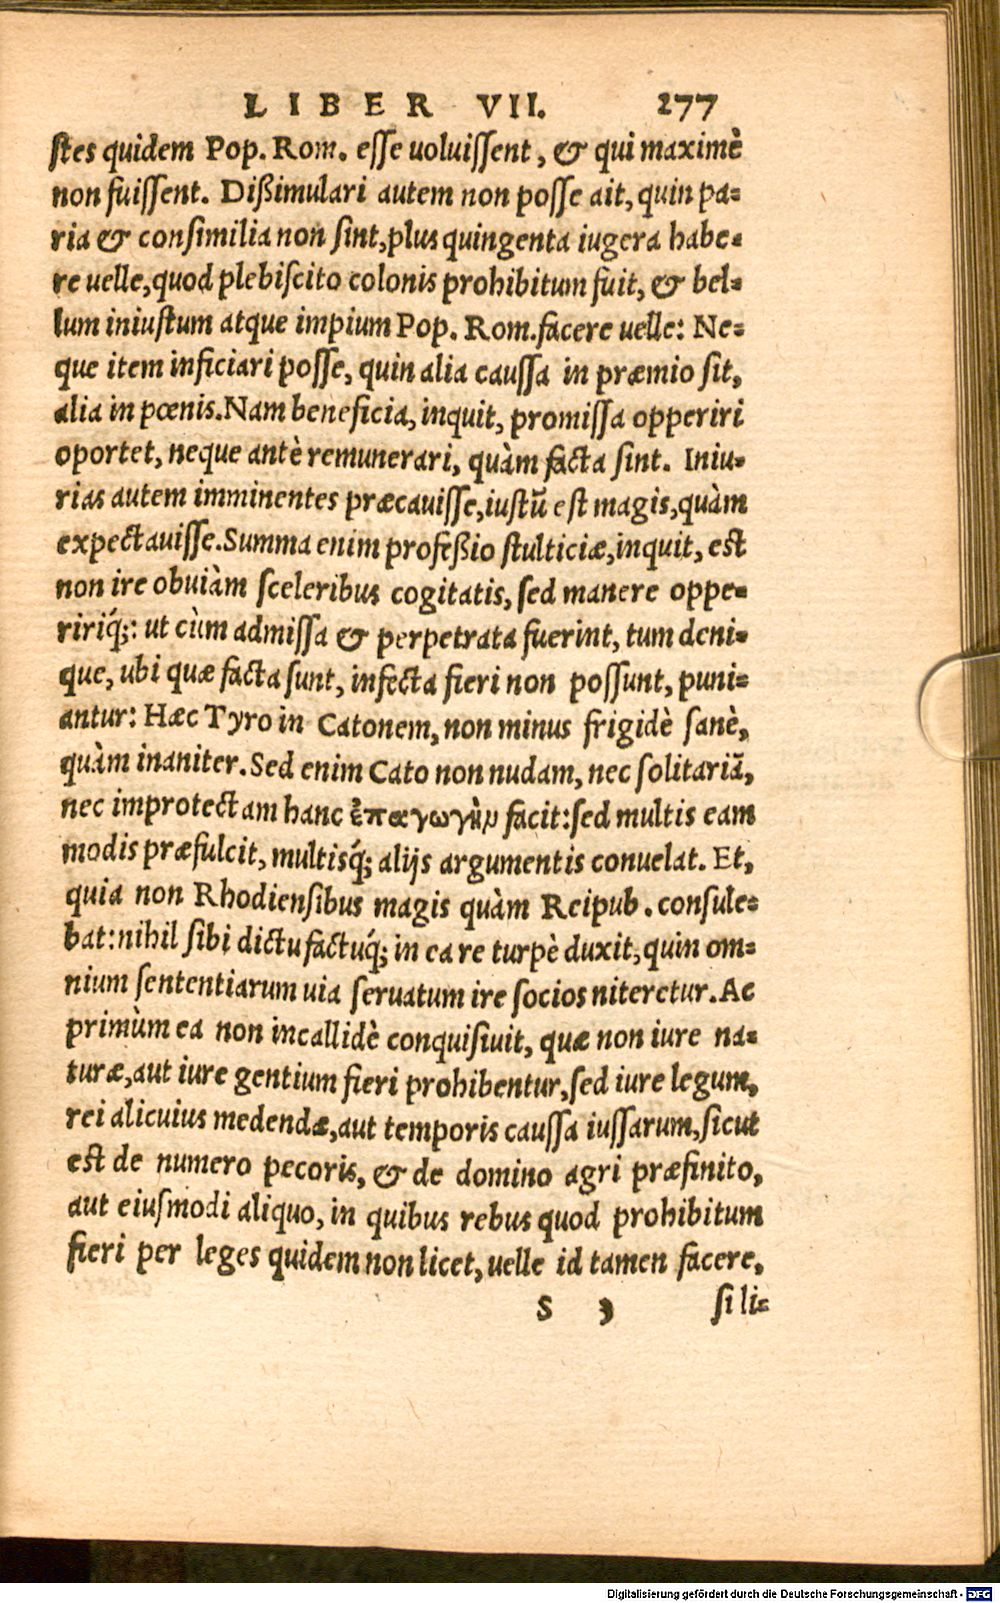 LIBER VII. 277
ſtes quidem Pop. Rom. eſſe uoluiſſent, & qui maximè
non fuiſſent. Dißimulari autem non poſſe ait, quin pa=
ria & conſimilia non ſint, plus quingenta iugera habe=
re uelle, quod plebiſcito colonis prohibitum fuit, & bel=
lum iniuſtum atque impium Pop. Rom. facere uelle: Ne=
que item inficiari poſſe, quin alia cauſſa in præmio ſit,
alia in pœnis. Nam beneficia, inquit, promiſſa opperiri
oportet, neque antè remunerari, quàm facta ſint. Iniu=
rias autem imminentes præcauiſſe, iuſtũ eſt magis, quàm
expectauiſſe. Summa enim profeßio ſtulticiæ, inquit, eſt
non ire obuiàm ſceleribus cogitatis, ſed manere oppe=
ririq́;: ut cùm admiſſa & perpetrata fuerint, tum deni=
que, ubi quæ facta ſunt, infecta fieri non poſſunt, puni=
antur: Hæc Tyro in Catonem, non minus frigidè ſanè,
quàm inaniter. Sed enim Cato non nudam, nec ſolitariã,
nec improtectam hanc ἐπαγωγὴν facit: ſed multis eam
modis præfulcit, multisq́; alijs argumentis conuelat. Et,
quia non Rhodienſibus magis quàm Reipub. conſule=
bat: nihil ſibi dictu factuq́; in ea re turpè duxit, quin om=
nium ſententiarum uia ſeruatum ire ſocios niteretur. Ac
primùm ea non incallidè conquiſiuit, quæ non iure na=
turæ, aut iure gentium fieri prohibentur, ſed iure legum,
rei alicuius medendæ, aut temporis cauſſa iuſſarum, ſicut
eſt de numero pecoris, & de domino agri præfinito,
aut eiuſmodi aliquo, in quibus rebus quod prohibitum
fieri per leges quidem non licet, uelle id tamen facere,
S 3 ſi li=
Digitalisierung gefördert durch die Deutsche Forschungsgemeinschaft - DFG